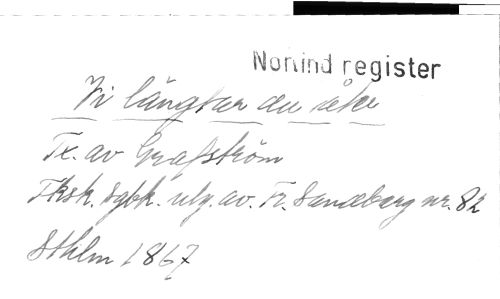 Norlind register
Vi längtar du
Tx. av Grafström
Fksk. Sgbk. utg. av. Fr. Sandberg nr. 82
Sthlm 1867